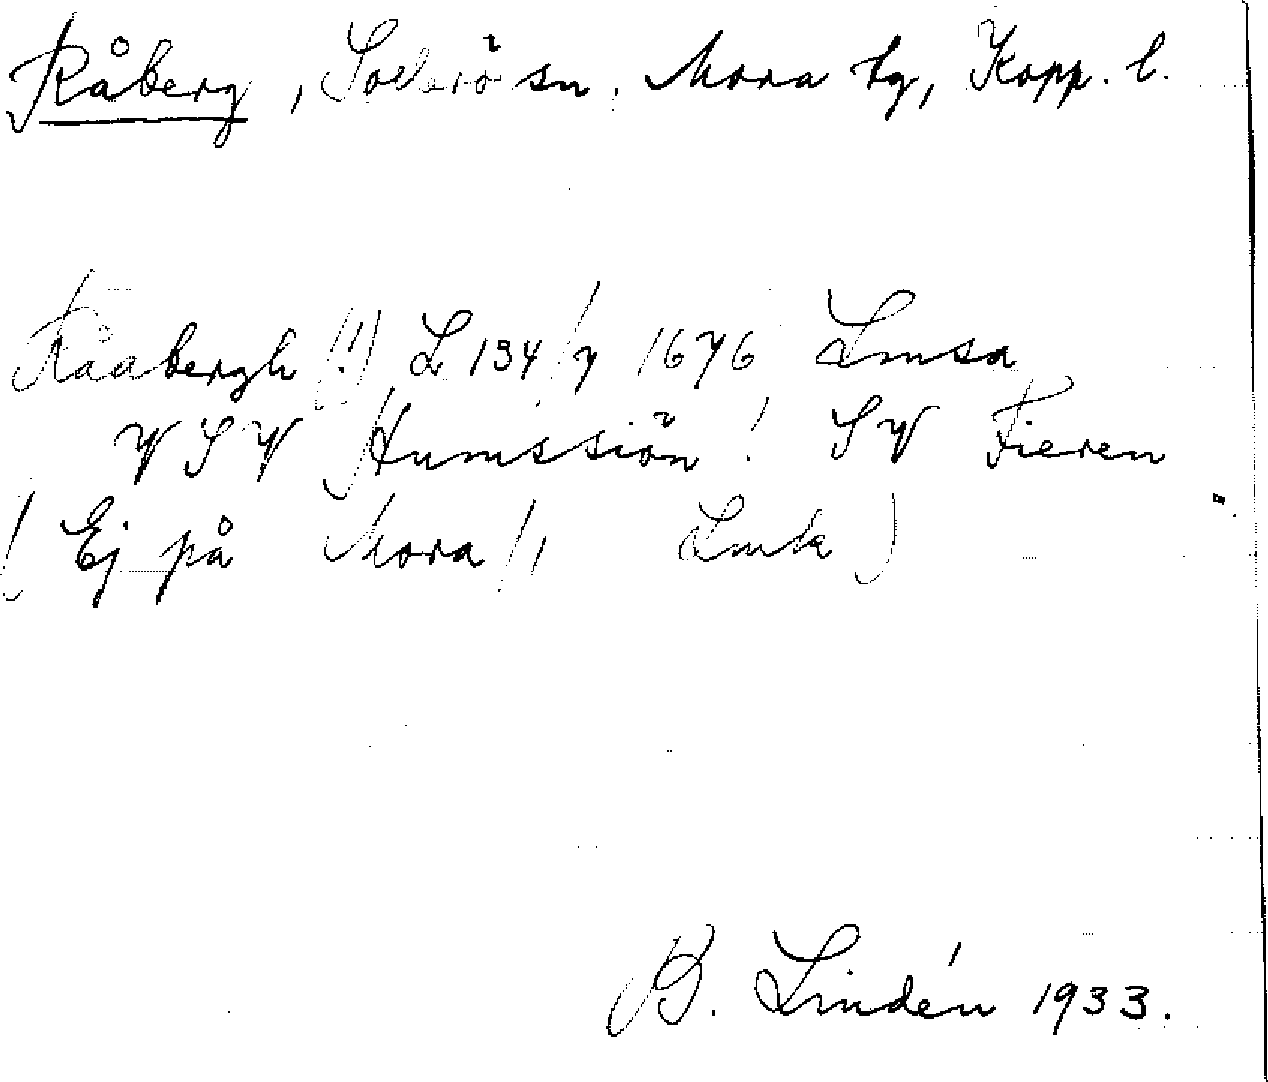 Råberg, Sollerö sn, Mora tg, Kopp. l.
Råabergh (!) L 134/7 1676 Lmsa
VSV Humssiön! SV Fieren
(Ej på Mora // Lmk)
B. Lindén 1933.